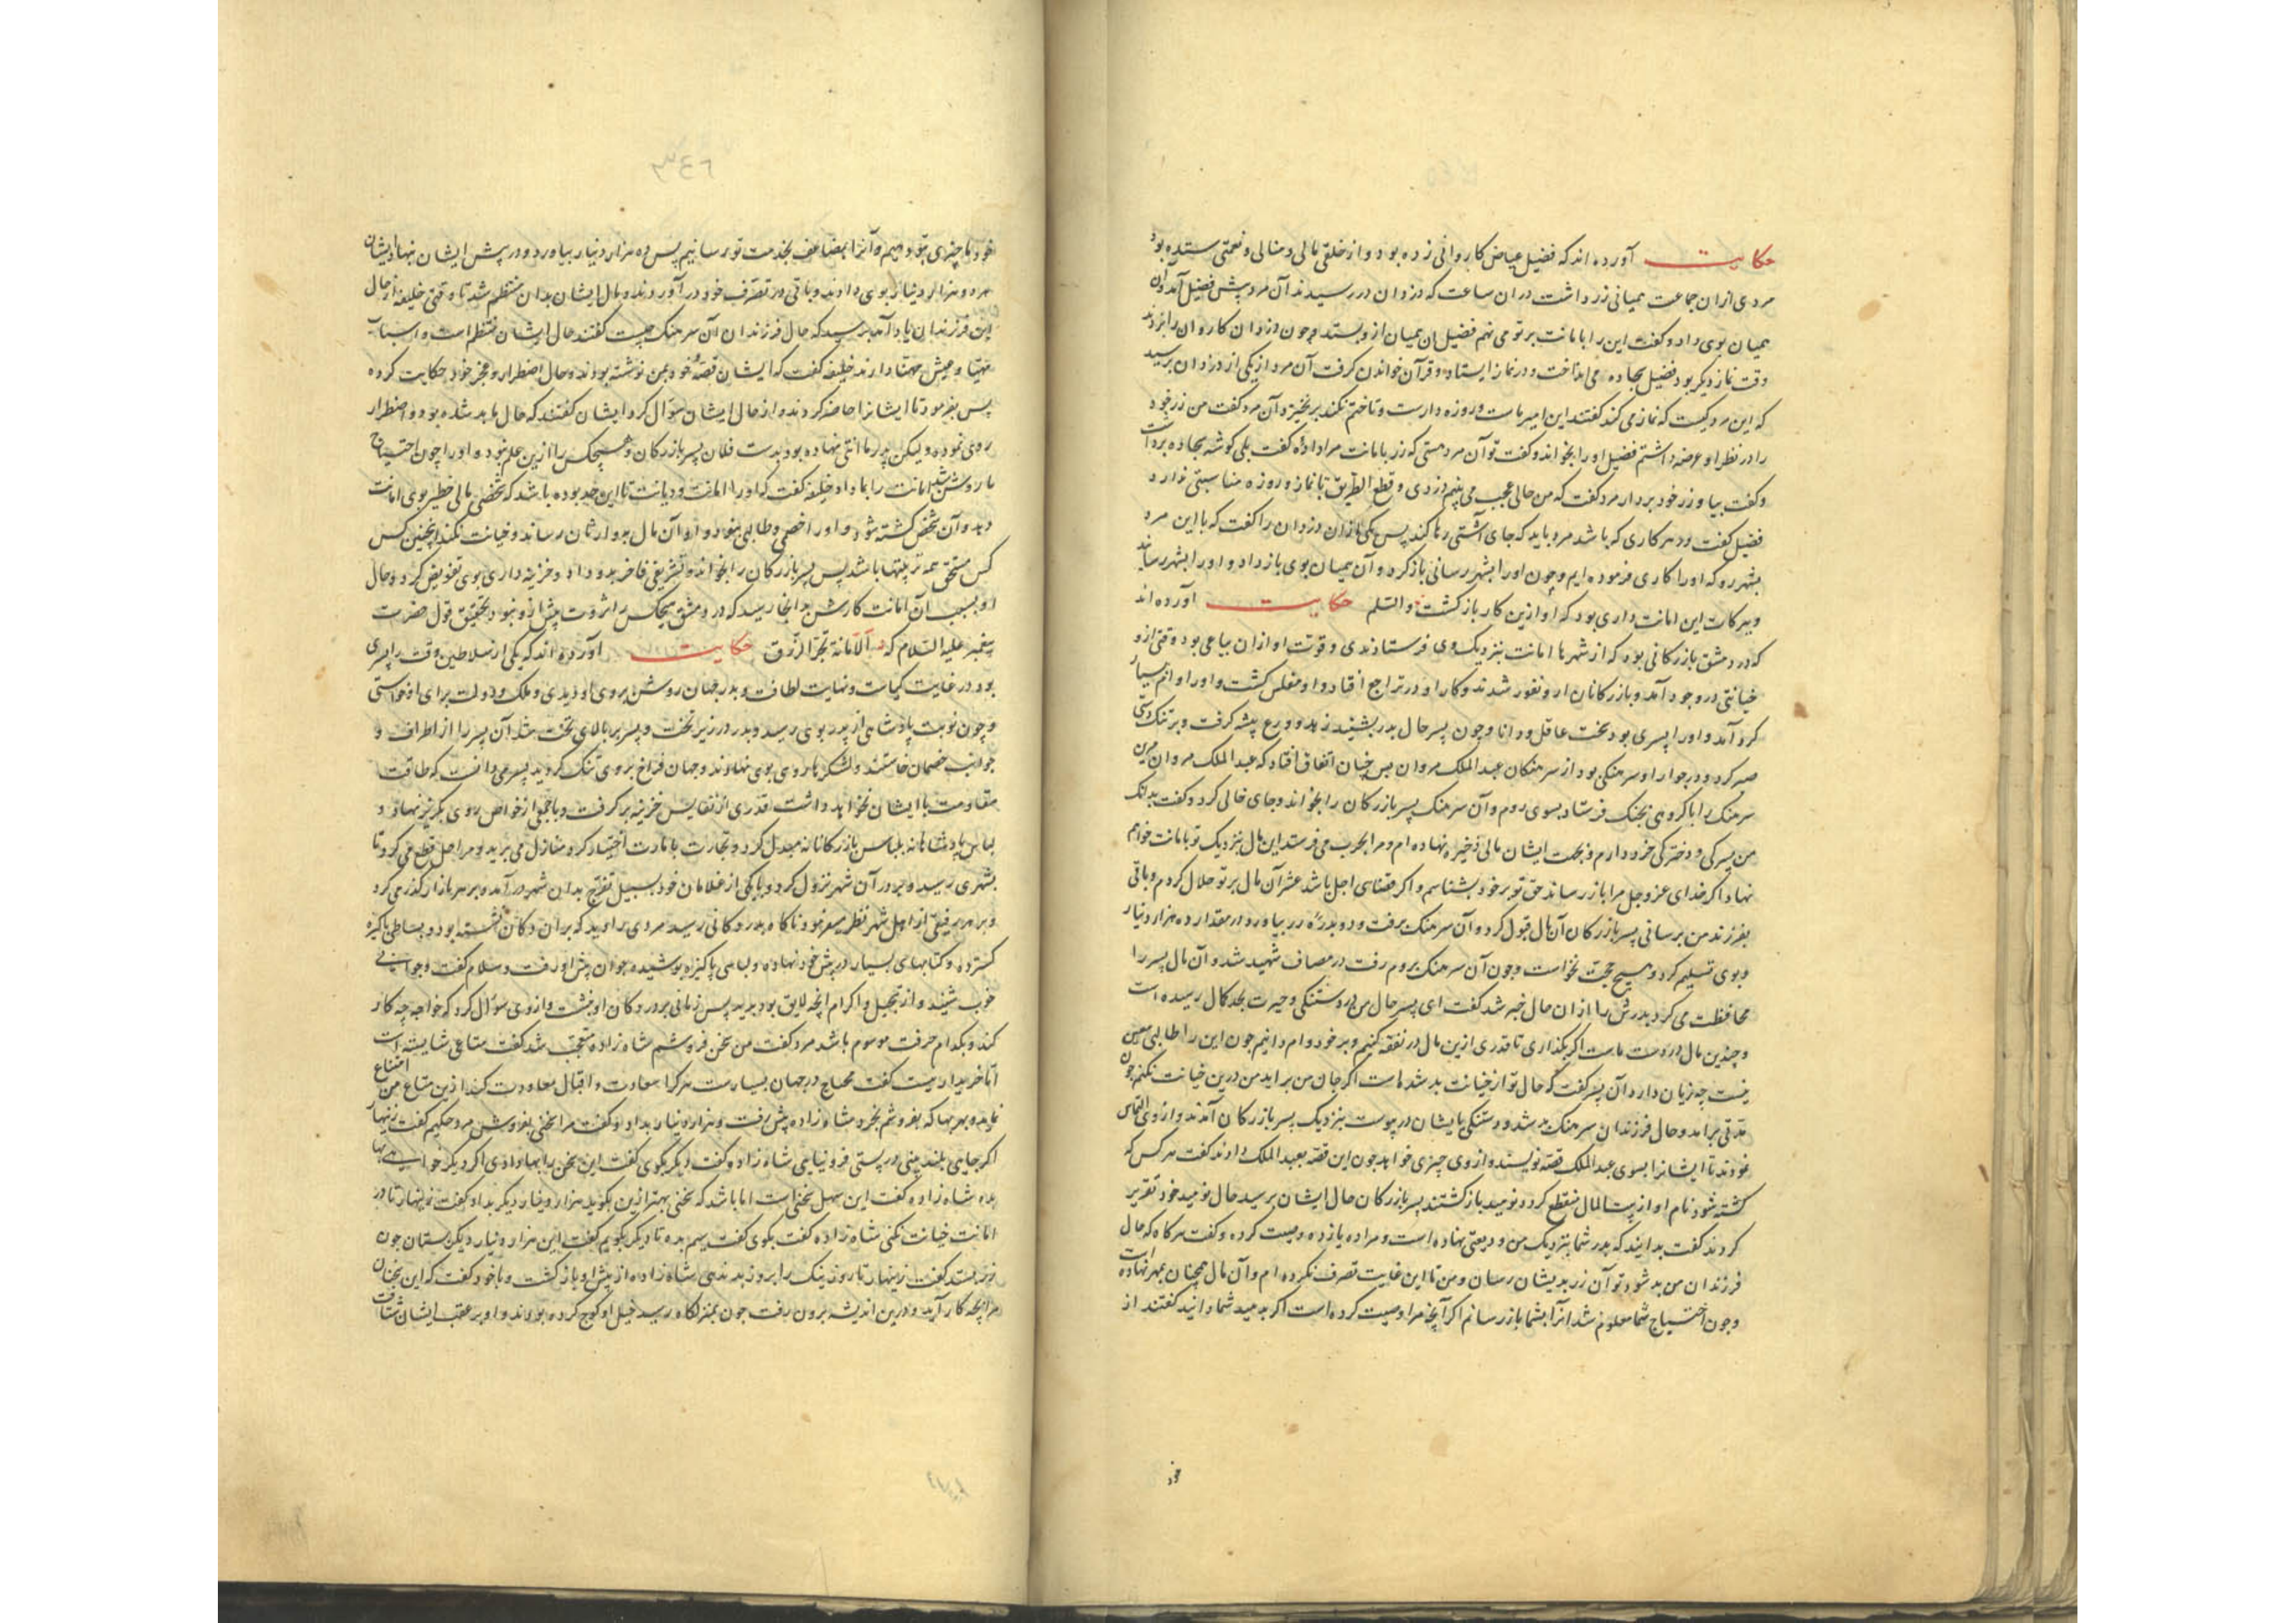 حکایت آورده اند که فضیل عیاض کاروانی زده بود و از خلقی مالی و منالی و نعمتی ستیده بود
مردی ازان جماعت همیانی زر داشت دران ساعت که دزدان در رسیدند آن مرد پیش فضیل آمد وان
همیان بوی داد و کفت این را بامانت بر تو می نهم فضیل ان همیان از و بستد و چون دزدان کاروان را بزدند
وقت نماز دیکر بود فضیل سجاده می انداخت و در نماز ایستاد و قرآن خواندن کرفت آن مرد از یکی از دزدان پرسید
که این مرد کیست که نماز می کند کفتند این امیر ماست و روزه دارست و تا ختم نکند بر نخیزد آن مرد کفت من زر خود
را در نظر او عرضه داشتم فضیل او را بخواند و کفت تو آن مرد هستی که زر بامانت مرا دادهٔ کفت بلی کوشه سجاده برداشت
و کفت بیا و زر خود بردار مرد کفت که من حالی عجب می بینم دزدی و قطع الطریق با نماز و روزه مناسبتی ندارد
فضیل کفت در هر کاری که باشد مرد باید که جای آشتی رها کند پس یکی ازان دزدان را کفت که با این مرد
بشهر رو که او را کاری فرموده ایم و چون او را بشهر رسانی باز کرد و آن همیان بوی باز داد و او را بشهر رساند
و ببرکات این امانت داری بود که او ازین کار باز کشت والسلم حکایت آورده اند
که در دمشق بازرکانی بود که از شهرها امانت بنزدیک وی فرستادندی و قوت او ازان بیاعی بود وقتی ازو
خیانتی در وجود آمد و بازرکانان ازو نفور شدند و کار او در تراجع افتاد و او مفلس کشت و او را وام بسیار
کرد آمد و او را پسری بود سخت عاقل و دانا و چون پسر حال پدر بشنید زهد و ورع پیشه کرفت و بر تنک دستی
صبر کرد و در جوار او سرهنکی بود از سرهنکان عبد الملک مروان پس چنان اتفاق افتاد که عبد الملک مروان این
سرهنک را با کروهی بجنک فرستاد بسوی روم و آن سرهنک پسر بازرکان را بخواند و جای خالی کرد و کفت بدانک
من پسرکی و دخترکی خرد دارم و بجهت ایشان مالی ذخیره نهاده ام و مرا بحرب می فرستد این مال بنزدیک تو بامانت خواهم
نهاد اکر خدای عز و جل مرا باز رساند حق تو بر خود بشناسم و اکر قضای اجل باشد عشر آن مال بر تو حلال کردم و باقی
بفرزند من برسانی پسر بازرکان آن مال قبول کرد و آن سرهنک برفت و دو بدرهٔ زر بیاورد در مقدار ده هزار دینار
و بوی تسلیم کرد و هیچ حجت نخواست و چون آن سرهنک بروم رفت در مصاف شهید شد و آن مال پسر را
محافظت می کرد پدرش را ازان حال خبر شد کفت ای پسر حال من در تنکی و حیرت بحد کمال رسیده است
و چندین مال در دست ماست اکر بکذاری تا قدری ازین مال در نفقه کنیم و بر خود وام دانیم چون این را طالبی معین
نیست چه زیان دارد آن پسر کفت که حال تو از خیانت بد شده است اکر جان من بر اید من درین خیانت نکنم چون
مدتی بر امد و حال فرزندان سرهنک بد شد و تنکی بایشان در پیوست بنزدیک پسر بازرکان آمدند و ازوی التماس
نمودند تا ایشانرا بسوی عبد الملک قصه نویسند و از وی چیزی خواهد چون این قصه بعبد الملک دادند کفت هر کس که
کشته شود نام او از بیت المال منقطع کردد نومید باز کشتند پسر بازرکان حال ایشان بپرسید حال نومید خود تقریر
کردند کفت بدانید که پدر شما بنزدیک من ودیعتی نهاده است و مرا ده یازده وصیت کرده و کفت هر کاه که حال
فرزندان من بد شود تو آن زر بدیشان رسان و من تا این غایت تصرف نکرده ام و آن مال همچنان بمهر نهاده است
و چون احتیاج شما معلوم شد انرا بشما باز رسانم اکر آنچه مرا وصیت کرده است اکر بدهید شما دانید کفتند از
خود
خود ما چیزی بتو دهیم و آنرا بمضاعف بخدمت تو رسانیم پس ده هزار دینار بیاورد و در پیش ایشان بنهاد ایشان
دو هزار دینار بوی دادند و باقی در تصرف خود در آوردند و مال ایشان بدان منتظم شد تا وقتی خلیفه از حال
این فرزندان یاد آمد پرسید که حال فرزندان آن سرهنک چیست کفتند حال ایشان منتظم است و اسباب
مهیا و عیش مهنا دارند خلیفه کفت که ایشان قصهٔ خود بمن نوشته بودند و حال اضطرار و عجز خود حکایت کرده
پس بفرمود تا ایشانرا حاضر کردند و از حال ایشان سؤال کرد ایشان کفتند که حال ما بد شده بود و اضطرار
روی نموده و لیکن پدر ما امانتی نهاده بود بدست فلان پسر بازرکان و هیچکس را ازین علم نبود و او را چون احتیاج
ما روشن شد امانت را بما داد خلیفه کفت که او را امانت و دیانت تا این حد بوده باشد که شخصی مالی خطیر بوی امانت
دهد و آن شخص کشته شود و او را خصمی و طالبی نبود و او آن مال بوارثان رساند و خیانت نکند اینچنین کس
کس مستحق همه تربیتها باشد پس پسر بازرکان را بخواند و تشریفی فاخر بدو داد و خزینه داری بوی تفویض کرد و حال
او بسبب آن امانت کارش بدانجا رسید که در دمشق هیچکس را ثروت بیش ازو نبود بتحقیق قول حضرت
پیغمبر علیه السلام که الامانة تجر الرزق حکایت آورده اند که یکی از سلاطین وقت را پسری
بود در غایت کیاست و نهایت لطافت و پدر جهان روشن بروی او دیدی و ملک و دولت برای او خواستی
و چون نوبت پادشاهی از پدر بوی رسید و پدر در زیر تخت و پسر بر بالای تخت شد آن پسر را از اطراف و
جوانب خصمان خاستند و لشکرها روی بوی نهادند و جهان فراخ بروی تنک کردید پسر می دانست که طاقت
مقاومت با ایشان نخواهد داشت قدری از نفایس خزینه بر کرفت و با جمعی از خواص روی بکریز نهاد و
لباس پادشاهانه بلباس بازرکانانه مبدل کرد و تجارت با مارت اختیار کرد و منازل می برید و مراحل قطع می کرد تا
بشهری رسید و بر در آن شهر نزول کرد و با یکی از غلامان خود بسبیل تفرج بدان شهر در آمد و بر هر بازار کذر می کرد
و بر هر رفیقی از اهل شهر نظر می نمود ناکاه بدر دکانی رسید مردی را دید که بران دکان نشسته بود و بساطی پاکیزه
کسترده و کتابهای بسیار در پیش خود نهاده و لباسی پاکیزه پوشیده جوان پیش او رفت و سلام کفت و جوابی
خوب شنید و از تبجیل و اکرام انچه لایق بود بدید پس زمانی بر در دکان او بنشست و از وی سؤال کرد که خواجه چه کار
کند و بکدام حرفت موسوم باشد مرد کفت من سخن فروشم شاه زاده متعجب شد کفت متاعی شایسته است
اما خریدار نیست کفت محتاج در جهان بسیارست هر کرا سعادت و اقبال معاودت کند ازین متاع من امتناع
نماید و بهر بها که بفروشم بخرد شاه زاده پیش رفت و هزار دینار بداد و کفت مرا سخنی بفروش مرد حکیم کفت زنهار
اکر جایی بلند بینی در پستی فرو نیایی شاه زاده کفت دیکر بکوی کفت این سخن را بها دادی اکر دیکر خواهی بها
بده شاه زاده کفت این سهل سخنی است اما باشد که سخنی بهتر ازین بکوید هزار دینار دیکر بداد کفت زینهار تا در
امانت خیانت نکنی شاه زاده کفت بکوی کفت سیم بده تا دیکر بکویم کفت این هزار دینار دیکر بستان چون
زر بستد کفت زینهار تا روز نیک را بروز بد ندهی شاه زاده از پیش او باز کشت و با خود کفت که این سخنان
مرا بچه کار آید و درین اندیشه برون رفت چون بمنزلکاه رسید خیل او کوچ کرده بودند و او بر عقب ایشان شتافت